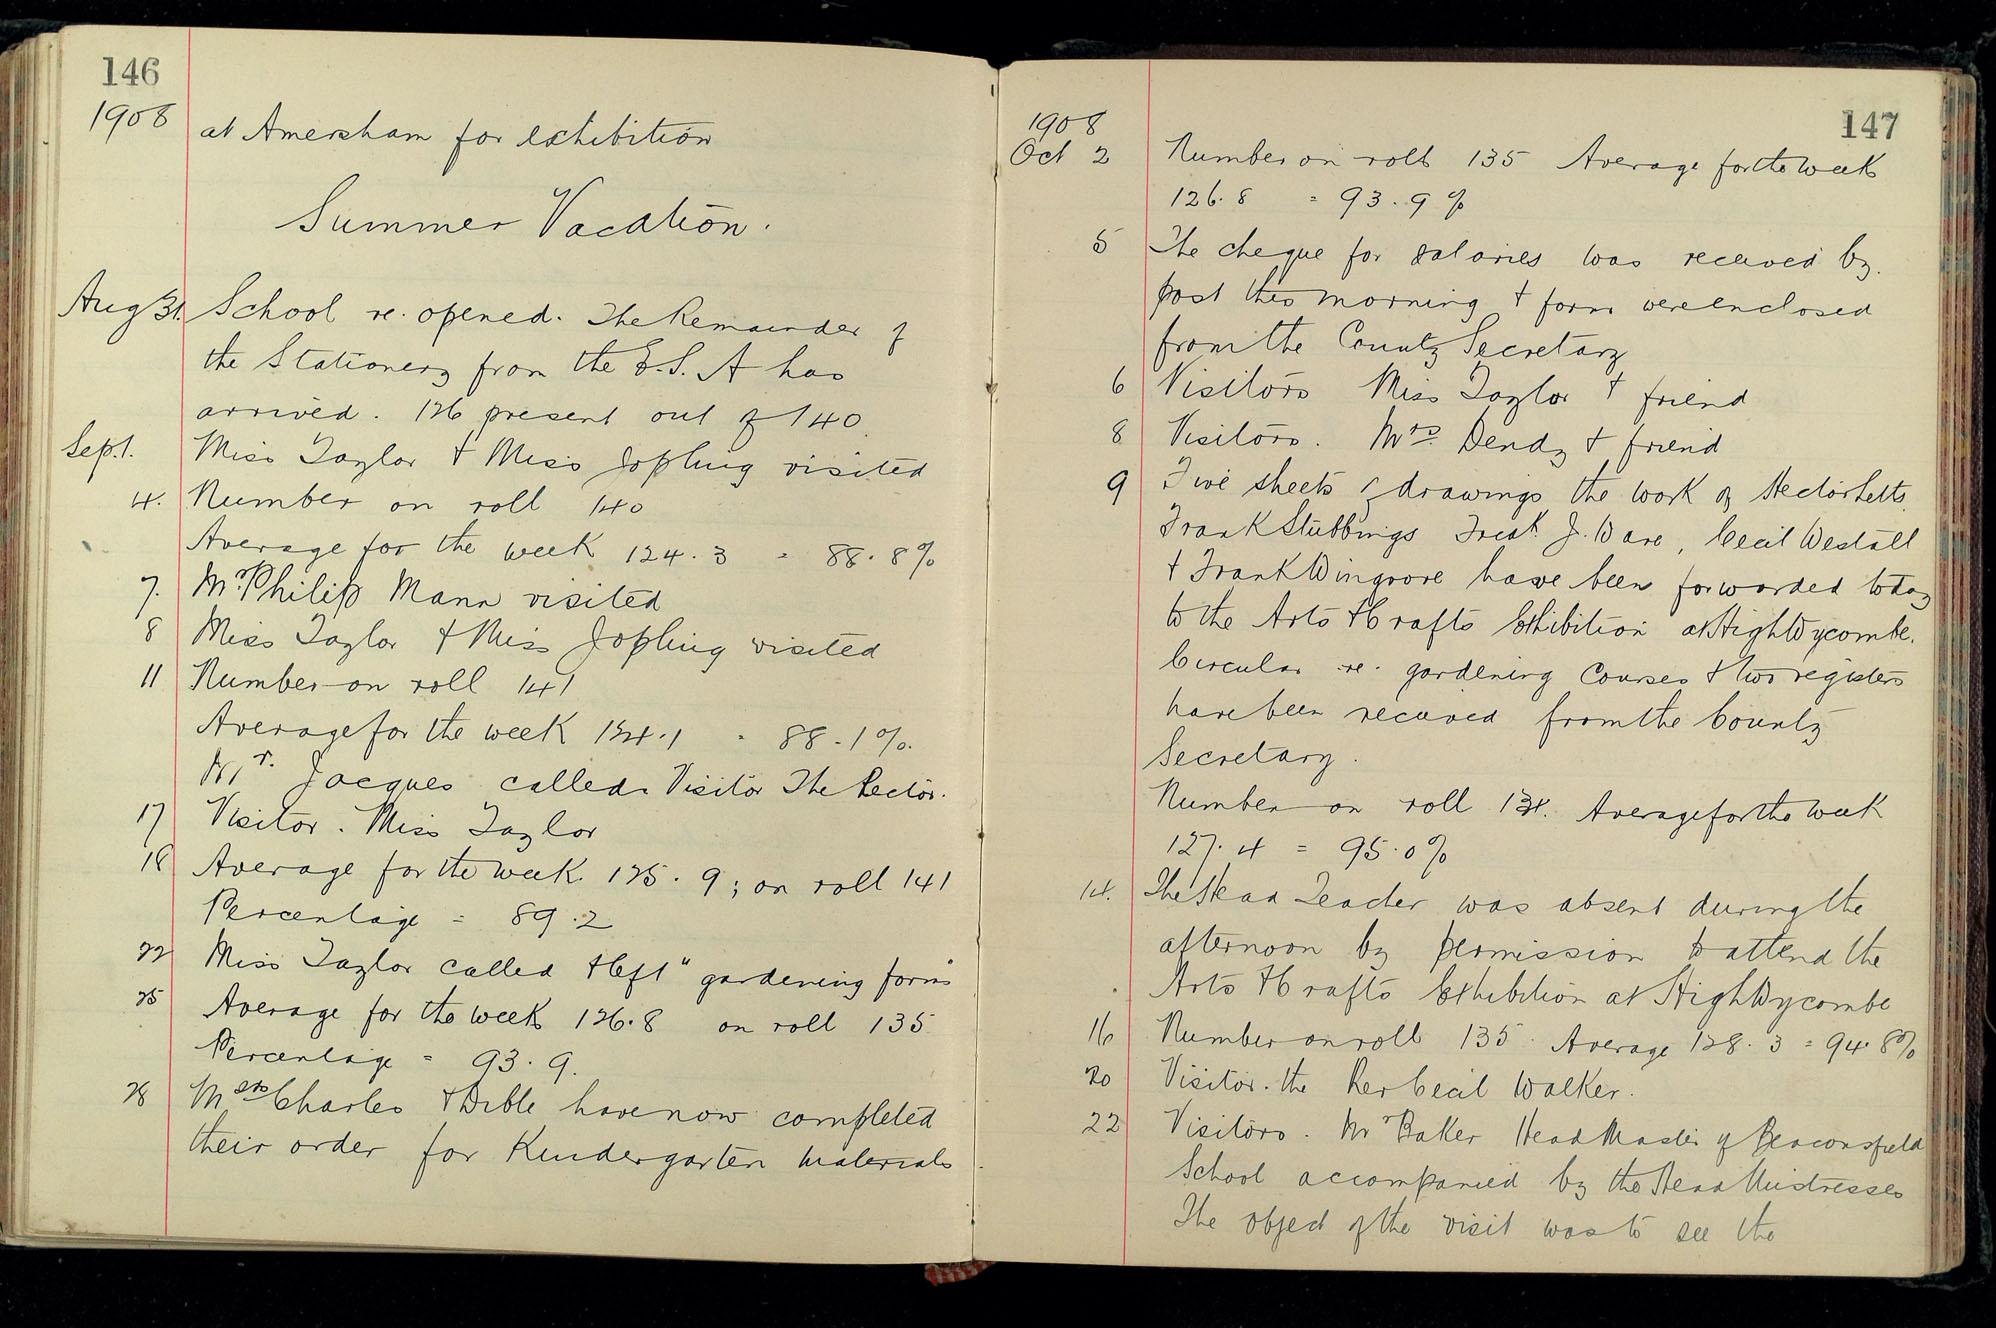 146
1908 at Amersham for exhibition
Summer Vacation.
Aug 31. School re-opened. The Remainder of
the Stationery from the E.S.A has
arrived. 126 present out of 140
Sep. 1. Miss Taylor & Miss Jopling visited
4. Number on roll 140
Average for the week 124.3 = 88.8%
7. Mr Philip Mann visited
8 Miss Taylor & Miss Jopling visited
11 Number on roll 141
Average for the week 124.1 = 88.1%.
Mr. Jacques called. Visitor The Rector.
17 Visitor. Miss Taylor
18 Average for the week. 125.9; on roll 141
Percentage = 89.2
22 Miss Taylor called & left "gardening forms"
25 Average for the week 126.8 on roll 135
Percentage = 93.9.
28 Messrs Charles & Dible have now completed
their order for Kindergarten materials
147
1908
Oct 2 Number on roll 135 Average for the week
126.8 = 93.9%
5 The cheque for salaries was received by
post this morning & forms were enclosed
from the County Secretary
6 Visitors Miss Taylor & friend
8 Visitors. Mrs. Dendy & friend
9 Five sheets of drawings the work of Hector Letts
Frank Stubbings Fredk. J. Ware, Cecil Westall
& Frank Wingrove have been forwarded today
to the Arts & Crafts Exhibition at High Wycombe.
Circular re. gardening Courses & two registers
have been received from the County
Secretary.
Number on roll 134. Average for the week
127.4 = 95.0%
14. The Head Teacher was absent during the
afternoon by permission to attend the
Arts & Crafts Exhibition at High Wycombe
16 Number on roll 135. Average 128.3 = 94.8%
20 Visitor. the Rev Cecil Walker.
22 Visitors. Mr Baker Head Master of Beaconsfield
School accompanied by the Head Mistresses
The object of the visit was to see the